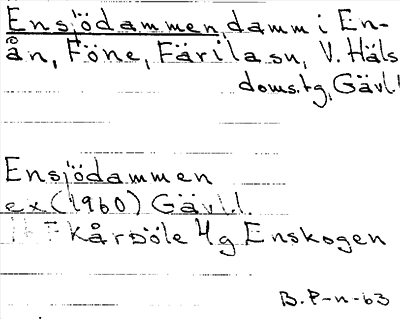 Ensjödammen, damm i En-
ån, Föne, Färila sn, V. Häls
doms.tg, Gävl.l
Ensjödammen
ex (1960) Gävl.l.
Kårböle 4g Enskogen
B. P-n-63